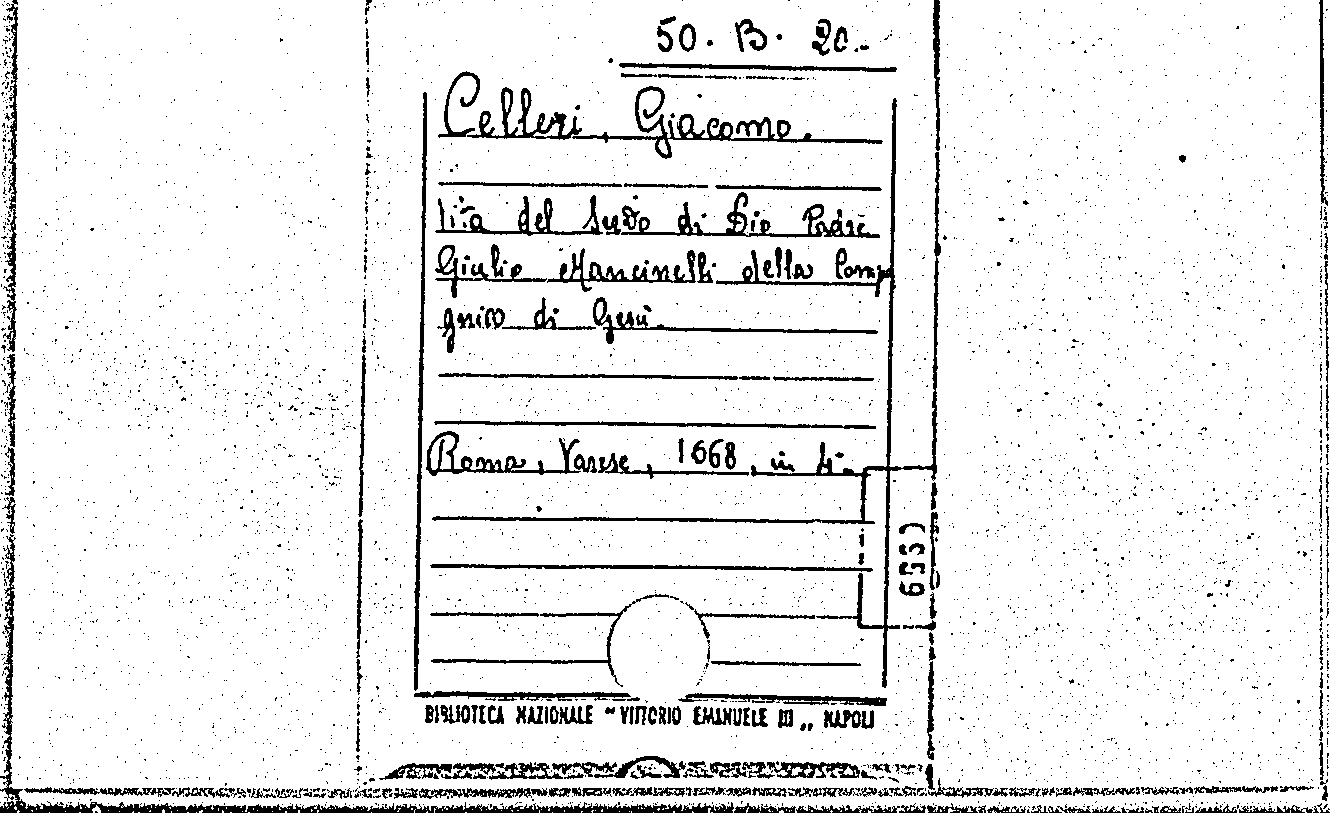 50. B. 20.
Celleri, Giacomo.
Vita del Servo di Dio Padre
Giulio Mancinelli della Compa
gnia di Gesù.
Roma, Varese, 1668, in 4°
BIBLIOTECA NAZIONALE "VITTORIO EMANUELE III„ NAPOLI